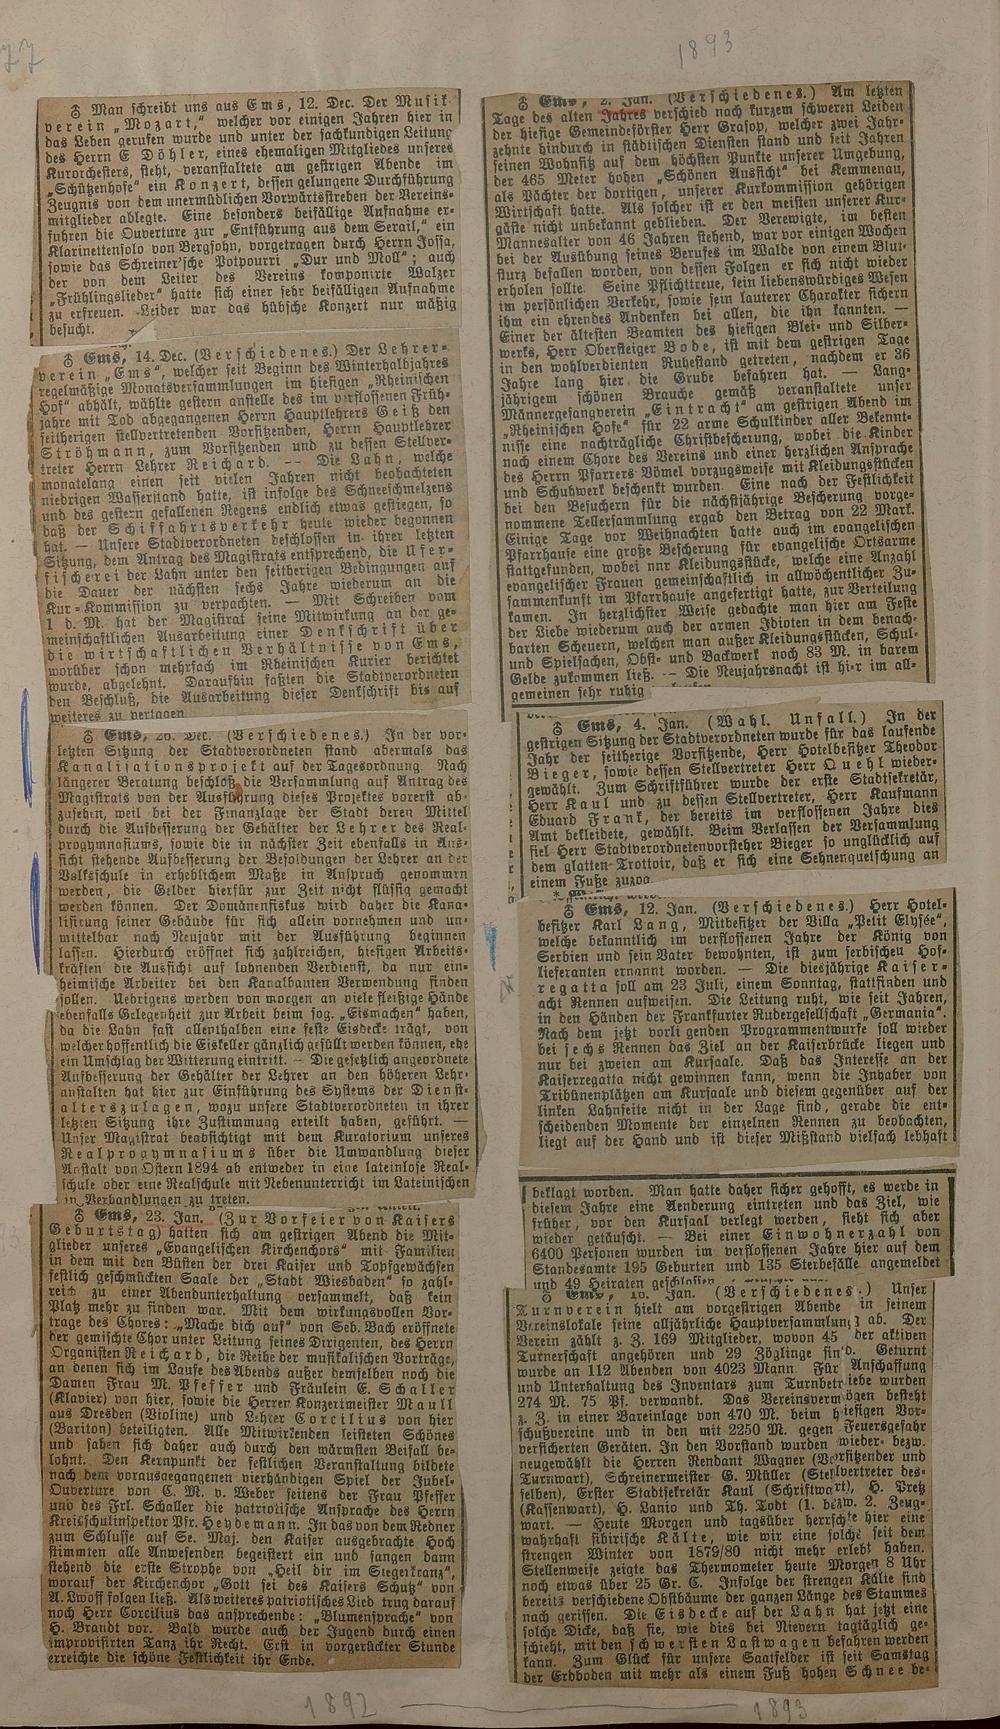 77
1893
⚦ Man schreibt uns aus Ems, 12. Dec. Der Musik-
verein „Mozart,“ welcher vor einigen Jahren hier in
das Leben gerufen wurde und unter der sachkundigen Leitung
des Herrn E Döhler, eines ehemaligen Mitgliedes unseres
Kurorchesters, steht, veranstaltete am gestrigen Abende im
„Schützenhofe“ ein Konzert, dessen gelungene Durchführung
Zeugnis von dem unermüdlichen Vorwärtsstreben der Vereins-
mitglieder ablegte. Eine besonders beifällige Aufnahme er-
fuhren die Ouverture zur „Entführung aus dem Serail,“ ein
Klarinettensolo von Bergsohn, vorgetragen durch Herrn Jossa,
sowie das Schreiner'sche Potpourri „Dur und Moll“; auch
der von dem Leiter des Vereins komponirte Walzer
„Frühlingslieder“ hatte sich einer sehr beifälligen Aufnahme
zu erfreuen. Leider war das hübsche Konzert nur mäßig
besucht.
⚦ Ems, 14. Dec. (Verschiedenes.) Der Lehrer-
verein „Ems“, welcher seit Beginn des Winterhalbjahres
regelmäßige Monatsversammlungen im hiesigen „Rheinischen
Hof“ abhält, wählte gestern anstelle des im verflossenen Früh-
jahre mit Tod abgegangenen Herrn Hauptlehrers Geiß den
seitherigen stellvertretenden Vorsitzenden, Herrn Hauptlehrer
Ströhmann, zum Vorsitzenden und zu dessen Stellver-
treter Herrn Lehrer Reichard. — Die Lahn, welche
monatelang einen seit vielen Jahren nicht beobachteten
niedrigen Wasserstand hatte, ist infolge des Schneeschmelzens
und des gestern gefallenen Regens endlich etwas gestiegen, so
daß der Schiffahrtsverkehr heute wieder begonnen
hat. — Unsere Stadtverordneten beschlossen in ihrer letzten
Sitzung, dem Antrag des Magistrats entsprechend, die Ufer-
fischerei der Lahn unter den seitherigen Bedingungen auf
die Dauer der nächsten sechs Jahre wiederum an die
Kur-Kommission zu verpachten. — Mit Schreiben vom
1 d. M. hat der Magistrat seine Mitwirkung an der ge-
meinschaftlichen Ausarbeitung einer Denkschrift über
die wirtschaftlichen Verhältnisse von Ems,
worüber schon mehrfach im Rheinischen Kurier berichtet
wurde, abgelehnt. Daraufhin faßten die Stadtverordneten
den Beschluß, die Ausarbeitung dieser Denkschrift bis auf
weiteres zu vertagen
⚦ Ems, 20. Dec. (Verschiedenes.) In der vor-
letzten Sitzung der Stadtverordneten stand abermals das
Kanalisationsprojekt auf der Tagesordnung. Nach
längerer Beratung beschloß die Versammlung auf Antrag des
Magistrats von der Ausführung dieses Projektes vorerst ab-
zusehen, weil bei der Finanzlage der Stadt deren Mittel
durch die Aufbesserung der Gehälter der Lehrer des Real-
progymnasiums, sowie die in nächster Zeit ebenfalls in Aus-
sicht stehende Aufbesserung der Besoldungen der Lehrer an der
Volksschule in erheblichem Maße in Anspruch genommen
werden, die Gelder hierfür zur Zeit nicht flüssig gemacht
werden können. Der Domänenfiskus wird daher die Kana-
lisirung seiner Gebäude für sich allein vornehmen und un-
mittelbar nach Neujahr mit der Ausführung beginnen
lassen. Hierdurch eröffnet sich zahlreichen, hiesigen Arbeits-
kräften die Aussicht auf lohnenden Verdienst, da nur ein-
heimische Arbeiter bei den Kanalbauten Verwendung finden
sollen. Uebrigens werden von morgen an viele fleißige Hände
ebenfalls Gelegenheit zur Arbeit beim sog. „Eismachen“ haben,
da die Lahn fast allenthalben eine feste Eisdecke trägt, von
welcher hoffentlich die Eiskeller gänzlich gefüllt werden können, ehe
ein Umschlag der Witterung eintritt. — Die gesetzlich angeordnete
Aufbesserung der Gehälter der Lehrer an den höheren Lehr-
anstalten hat hier zur Einführung des Systems der Dienst-
alterszulagen, wozu unsere Stadtverordneten in ihrer
letzten Sitzung ihre Zustimmung erteilt haben, geführt. —
Unser Magistrat beabsichtigt mit dem Kuratorium unseres
Realprogymnasiums über die Umwandlung dieser
Anstalt von Ostern 1894 ab entweder in eine lateinlose Real-
schule oder eine Realschule mit Nebenunterricht im Lateinischen
in Verhandlungen zu treten.
⚦ Ems, 23. Jan. (Zur Vorfeier von Kaisers
Geburtstag) hatten sich am gestrigen Abend die Mit-
glieder unseres „Evangelischen Kirchenchors“ mit Familien
in dem mit den Büsten der drei Kaiser und Topfgewächsen
festlich geschmückten Saale der „Stadt Wiesbaden“ so zahl-
reich zu einer Abendunterhaltung versammelt, daß kein
Platz mehr zu finden war. Mit dem wirkungsvollen Vor-
trage des Chores: „Mache dich auf“ von Seb. Bach eröffnete
der gemischte Chor unter Leitung seines Dirigenten, des Herrn
Organisten Reichard, die Reihe der musikalischen Vorträge,
an denen sich im Laufe des Abends außer demselben noch die
Damen Frau M. Pfeffer und Fräulein E. Schaller
(Klavier) von hier, sowie die Herren Konzertmeister Maull
aus Dresden (Violine) und Lehrer Corcilius von hier
(Bariton) beteiligten. Alle Mitwirkenden leisteten Schönes
und sahen sich daher auch durch den wärmsten Beifall be-
lohnt. Den Kernpunkt der festlichen Veranstaltung bildete
nach dem vorausgegangenen vierhändigen Spiel der Jubel-
Ouverture von C. M. v. Weber seitens der Frau Pfeffer
und des Frl. Schaller die patriotische Ansprache des Herrn
Kreisschulinspektor Pfr. Heydemann. In das von dem Redner
zum Schlusse auf Se. Maj. den Kaiser ausgebrachte Hoch
stimmten alle Anwesenden begeistert ein und sangen dann
stehend die erste Strophe von „Heil dir im Siegerkranz“,
worauf der Kirchenchor „Gott sei des Kaisers Schutz“ von
A. Lwoff folgen ließ. Als weiteres patriotisches Lied trug darauf
noch Herr Corcilius das ansprechende: „Blumensprache“ von
H. Brandt vor. Bald wurde auch der Jugend durch einen
improvisirten Tanz ihr Recht. Erst in vorgerückter Stunde
erreichte die schöne Festlichkeit ihr Ende.
⚦ Ems, 2. Jan. (Verschiedenes.) Am letzten
Tage des alten Jahres verschied nach kurzem schweren Leiden
der hiesige Gemeindeförster Herr Grasop, welcher zwei Jahr-
zehnte hindurch in städtischen Diensten stand und seit Jahren
seinen Wohnsitz auf dem höchsten Punkte unserer Umgebung,
der 465 Meter hohen „Schönen Aussicht“ bei Kemmenau,
als Pächter der dortigen, unserer Kurkommission gehörigen
Wirtschaft hatte. Als solcher ist er den meisten unserer Kur-
gäste nicht unbekannt geblieben. Der Verewigte, im besten
Mannesalter von 46 Jahren stehend, war vor einigen Wochen
bei der Ausübung seines Berufes im Walde von einem Blut-
sturz befallen worden, von dessen Folgen er sich nicht wieder
erholen sollte. Seine Pflichttreue, sein liebenswürdiges Wesen
im persönlichen Verkehr, sowie sein lauterer Charakter sichern
ihm ein ehrendes Andenken bei allen, die ihn kannten. —
Einer der ältesten Beamten des hiesigen Blei- und Silber-
werks, Herr Obersteiger Bode, ist mit dem gestrigen Tage
in den wohlverdienten Ruhestand getreten, nachdem er 36
Jahre lang hier die Grube befahren hat. — Lang-
jährigem schönen Brauche gemäß veranstaltete unser
Männergesangverein „Eintracht“ am gestrigen Abend im
„Rheinischen Hofe“ für 22 arme Schulkinder aller Bekennt-
nisse eine nachträgliche Christbescherung, wobei die Kinder
nach einem Chore des Vereins und einer herzlichen Ansprache
des Herrn Pfarrers Vömel vorzugsweise mit Kleidungsstücken
und Schuhwerk beschenkt wurden. Eine nach der Festlichkeit
bei den Besuchern für die nächstjährige Bescherung vorge-
nommene Tellersammlung ergab den Betrag von 22 Mark.
Einige Tage vor Weihnachten hatte auch im evangelischen
Pfarrhause eine große Bescherung für evangelische Ortsarme
stattgefunden, wobei nur Kleidungsstücke, welche eine Anzahl
evangelischer Frauen gemeinschaftlich in allwöchentlicher Zu-
sammenkunft im Pfarrhause angefertigt hatte, zur Verteilung
kamen. In herzlichster Weise gedachte man hier am Feste
der Liebe wiederum auch der armen Idioten in dem benach-
barten Scheuern, welchen man außer Kleidungsstücken, Schul-
und Spielsachen, Obst- und Backwerk noch 83 M. in barem
Gelde zukommen ließ. — Die Neujahrsnacht ist hier im all-
gemeinen sehr ruhig
⚦ Ems, 4. Jan. (Wahl. Unfall.) In der
gestrigen Sitzung der Stadtverordneten wurde für das laufende
Jahr der seitherige Vorsitzende, Herr Hotelbesitzer Theodor
Bieger, sowie dessen Stellvertreter Herr Quehl wieder-
gewählt. Zum Schriftführer wurde der erste Stadtsekretär,
Herr Kaul und zu dessen Stellvertreter, Herr Kaufmann
Eduard Frank, der bereits im verflossenen Jahre dies
Amt bekleidete, gewählt. Beim Verlassen der Versammlung
fiel Herr Stadtverordnetenvorsteher Bieger so unglücklich auf
dem glatten Trottoir, daß er sich eine Sehnenquetschung an
einem Fuße zuzog
⚦ Ems, 12. Jan. (Verschiedenes.) Herr Hotel-
besitzer Karl Lang, Mitbesitzer der Villa „Petit Elysée“,
welche bekanntlich im verflossenen Jahre der König von
Serbien und sein Vater bewohnten, ist zum serbischen Hof-
lieferanten ernannt worden. — Die diesjährige Kaiser-
regatta soll am 23 Juli, einem Sonntag, stattfinden und
acht Rennen aufweisen. Die Leitung ruht, wie seit Jahren,
in den Händen der Frankfurter Rudergesellschaft „Germania“.
Nach dem jetzt vorliegenden Programmentwurfe soll wieder
bei sechs Rennen das Ziel an der Kaiserbrücke liegen und
nur bei zweien am Kursaale. Daß das Interesse an der
Kaiserregatta nicht gewinnen kann, wenn die Inhaber von
Tribünenplätzen am Kursaale und diesem gegenüber auf der
linken Lahnseite nicht in der Lage sind, gerade die ent-
scheidenden Momente der einzelnen Rennen zu beobachten,
liegt auf der Hand und ist dieser Mißstand vielfach lebhaft
beklagt worden. Man hatte daher sicher gehofft, es werde in
diesem Jahre eine Aenderung eintreten und das Ziel, wie
früher, vor den Kursaal verlegt werden, sieht sich aber
wieder getäuscht. — Bei einer Einwohnerzahl von
6400 Personen wurden im verflossenen Jahre hier auf dem
Standesamte 195 Geburten und 135 Sterbefälle angemeldet
und 49 Heiraten geschlossen
⚦ Ems, 16. Jan. (Verschiedenes.) Unser
Turnverein hielt am vorgestrigen Abende in seinem
Vereinslokale seine alljährliche Hauptversammlung ab. Der
Verein zählt z. Z. 169 Mitglieder, wovon 45 der aktiven
Turnerschaft angehören und 29 Zöglinge sind. Geturnt
wurde an 112 Abenden von 4023 Mann. Für Anschaffung
und Unterhaltung des Inventars zum Turnbetriebe wurden
274 M. 75 Pf. verwandt. Das Vereinsvermögen besteht
z. Z. in einer Bareinlage von 470 M. beim hiesigen Vor-
schußvereine und in den mit 2250 M. gegen Feuersgefahr
versicherten Geräten. In den Vorstand wurden wieder- bezw.
neugewählt die Herren Rendant Wagner (Vorsitzender und
Turnwart), Schreinermeister G. Müller (Stellvertreter des-
selben), Erster Stadtsekretär Kaul (Schriftwart), H. Pretz
(Kassenwart), H. Lanio und Th. Todt (1. bezw. 2. Zeug-
wart. — Heute Morgen und tagsüber herrschte hier eine
wahrhaft sibirische Kälte, wie wir eine solche seit dem
strengen Winter von 1879/80 nicht mehr erlebt haben.
Stellenweise zeigte das Thermometer heute Morgen 8 Uhr
noch etwas über 25 Gr. C. Infolge der strengen Kälte sind
bereits verschiedene Obstbäume der ganzen Länge des Stammes
nach gerissen. Die Eisdecke auf der Lahn hat jetzt eine
solche Dicke, daß sie, wie dies bei Nievern tagtäglich ge-
schieht, mit den schwersten Lastwagen befahren werden
kann. Zum Glück für unsere Saatfelder ist seit Samstag
der Erdboden mit mehr als einem Fuß hohen Schnee be-
1892 — 1893